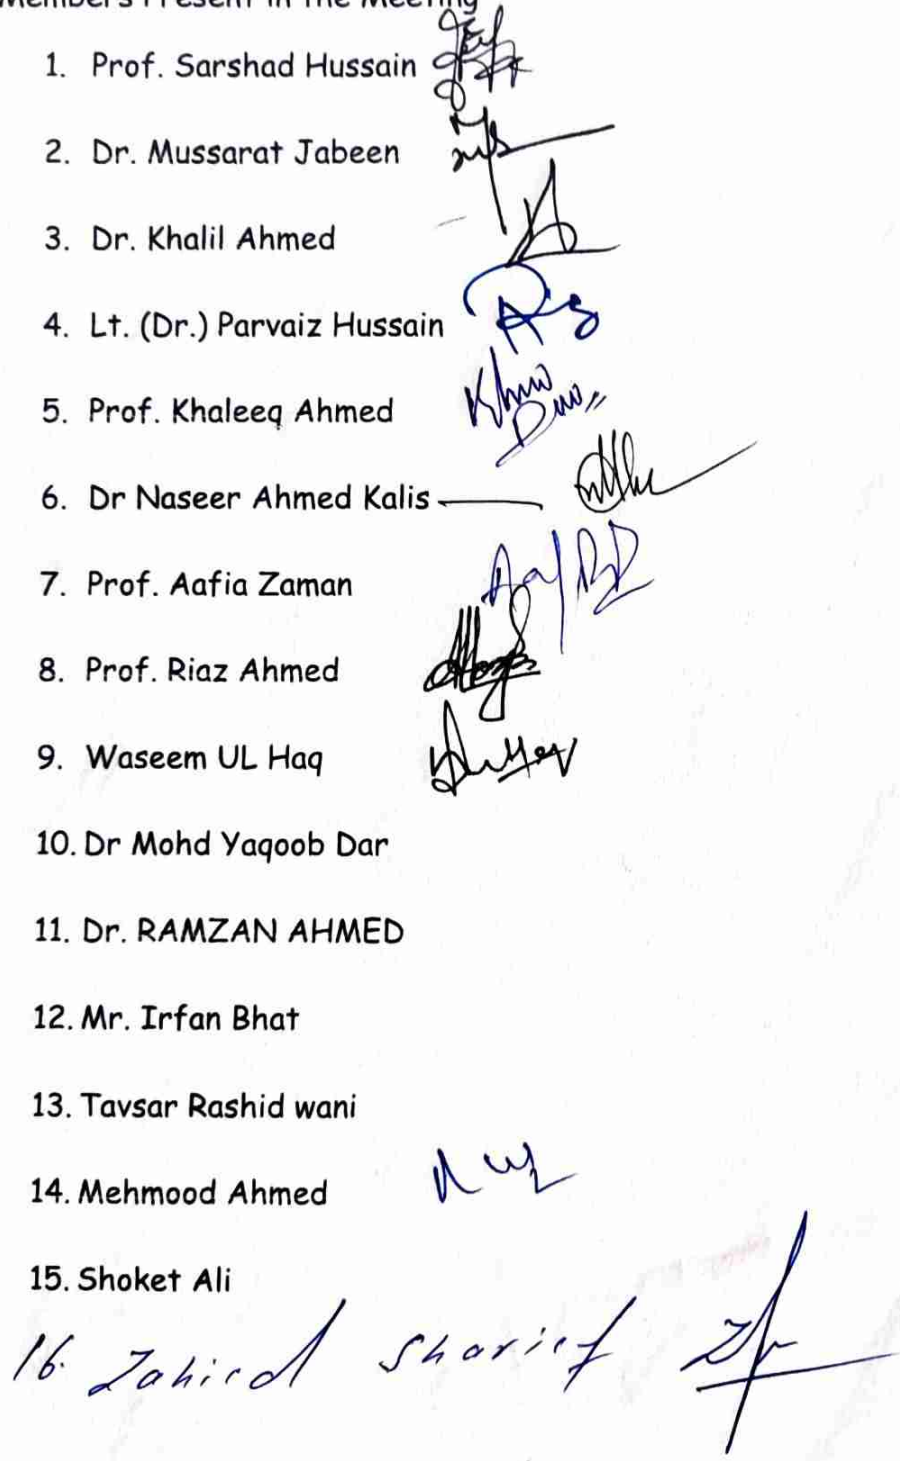 Members Present in The Meeting
1. Prof. Sarshad Hussain
2. Dr. Mussarat Jabeen
3. Dr. Khalil Ahmed
4. Lt. (Dr.) Parvaiz Hussain
5. Prof. Khaleeq Ahmed
6. Dr Naseer Ahmed Kalis
7. Prof. Aafia Zaman
8. Prof. Riaz Ahmed
9. Waseem UL Haq
10. Dr Mohd Yaqoob Dar
11. Dr. RAMZAN AHMED
12. Mr. Irfan Bhat
13. Tavsar Rashid wani
14. Mehmood Ahmed
15. Shoket Ali
16. Zahied Sharief